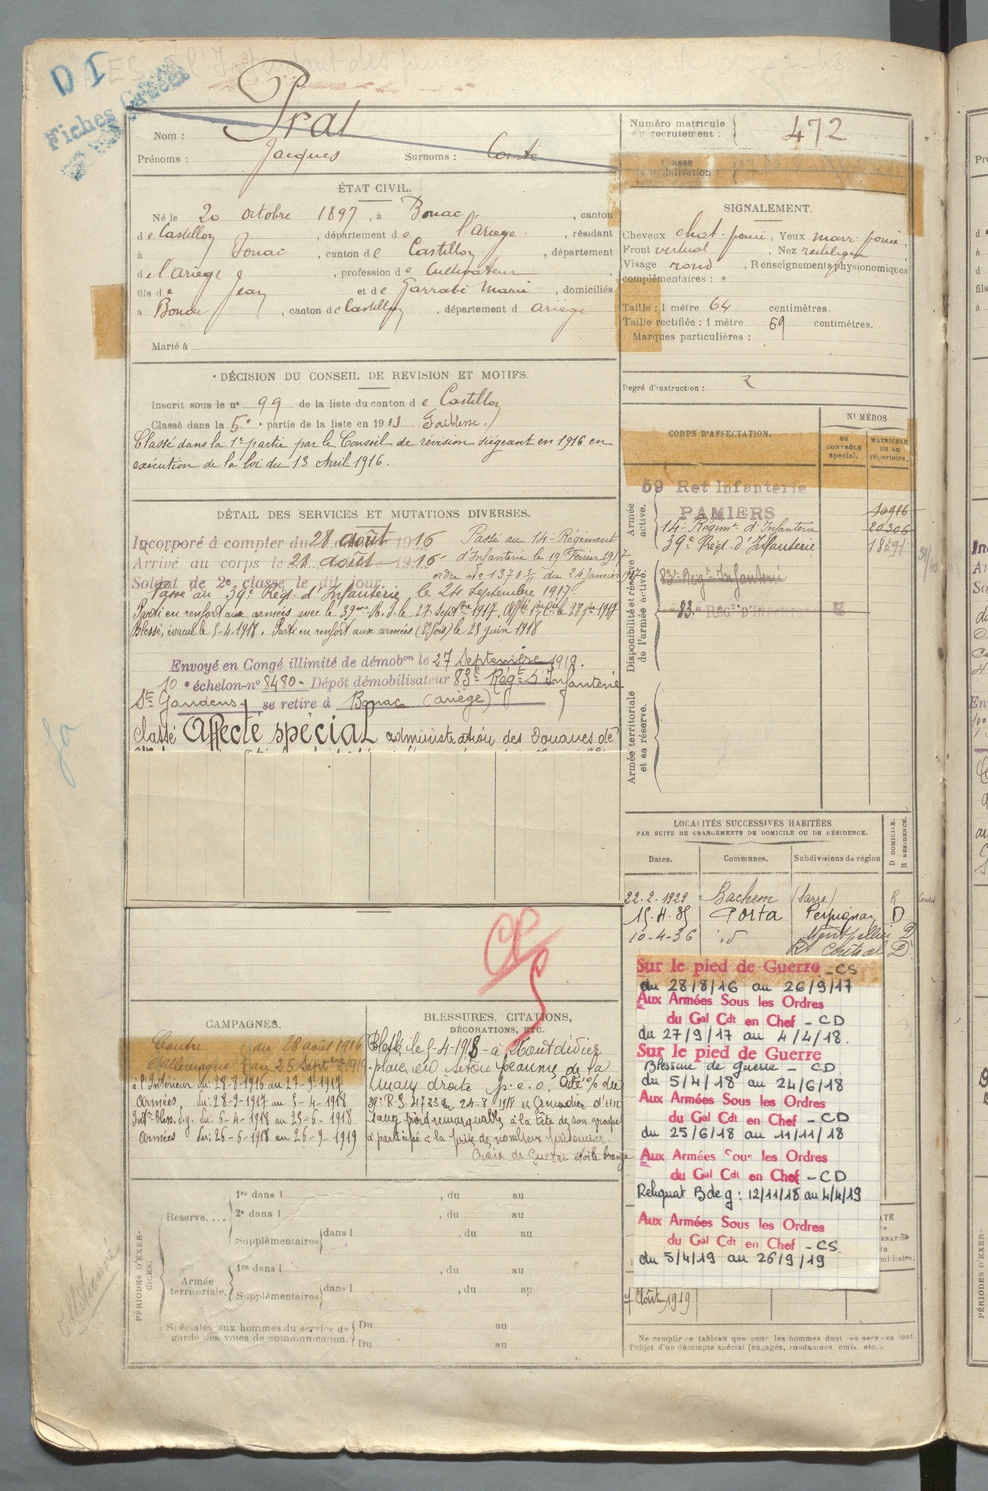 D I
Fiches
Nom : Prat
Prénoms : Jacques Surnoms : Comte
Numéro matricule
recrutement : 472
Classe
mobilisation :
ÉTAT CIVIL.
Né le 20 octobre 1897, à Bonac, canton
de Castillon, département de l'Ariège, résidant
à Bonac, canton de Castillon, département
de l'Ariège, profession de Cultivateur
fils de Jean et de Garrabé Marie, domiciliés
à Bonac, canton de Castillon, département d Ariège
Marié à
SIGNALEMENT.
Cheveux chat. foncé, Yeux marr. foncé,
Front vertical, Nez rectiligne
Visage rond, Renseignements physionomiques
complémentaires :
Taille : 1 mètre 64 centimètres.
Taille rectifiée : 1 mètre 69 centimètres.
Marques particulières :
Degré d'instruction : 2
DÉCISION DU CONSEIL DE REVISION ET MOTIFS.
Inscrit sous le n° 99 de la liste du canton de Castillon
Classé dans la 5e partie de la liste en 19 Faiblesse.
Classé dans la 1e partie par le Conseil de révision siégeant en 1916 en
exécution de la loi du 13 Avril 1916.
CORPS D'AFFECTATION.
NUMÉROS
AU CONTRÔLE spécial.
MATRICULE OU AU répertoire.
Armée active.
59 Ret Infanterie
PAMIERS
14e Régimt d'Infanterie
39e Régt d'Infanterie
Disponibilité et réserve de l'armée active.
83e Régt Infanterie
83e REGt D'INFANTERIE
Armée territoriale et sa réserve.
DÉTAIL DES SERVICES ET MUTATIONS DIVERSES.
Incorporé à compter du 28 août 1916
Arrivé au corps le 28 août 1916
Soldat de 2e classe le dit jour.
Passé au 14e Régiment
d'Infanterie le 19 Février 1917
Passé au 39e Régt d'Infanterie le 24 Septembre 1917
Parti en renfort aux armées avec le 39me R.I. le 27 Septbre 1917.
Blessé, évacué le 5-4-1918. Parti en renfort aux armées (2e fois) le 25 juin 1918
Envoyé en Congé illimité de démobon le 27 Septembre 1919.
10e échelon n° 8480 Dépôt démobilisateur 83e Régt d'Infanterie
St Gaudens, se retire à Bonac (ariège)
Classé Affecté spécial administration des Douanes de
LOCALITÉS SUCCESSIVES HABITÉES
PAR SUITE DE CHANGEMENTS DE DOMICILE OU DE RÉSIDENCE.
Dates. Communes. Subdivisions de région
D DOMICILE.
R RÉSIDENCE.
22-2-1922 Bachem (Sarre) R
15-4-35 Porta Perpignan D
10-4-36 id Montpellier D
Central D
Sur le pied de Guerre - CS
du 28/8/16 au 26/9/17
Aux Armées Sous les Ordres
du Gal Cdt en Chef - CD
du 27/9/17 au 4/4/18.
Sur le pied de Guerre
Blessure de guerre - CD
du 5/4/18 au 24/6/18
Aux Armées Sous les Ordres
du Gal Cdt en Chef - CD
du 25/6/18 au 11/11/18
Aux Armées Sous les Ordres
du Gal Cdt en Chef - CD
Reliquat B de g : 12/11/18 au 4/4/19
Aux Armées Sous les Ordres
du Gal Cdt en Chef - CS
du 5/4/19 au 26/9/19
Août 1919
CAMPAGNES.
Contre du 28 août 1916
l'Allemagne au 26 Septbre 1919
à l'Intérieur du 28-8-1916 au 27-9-1917
Armées, du 28-9-1917 au 5-4-1918
Intr Bless. du 6-4-1918 au 25-6-1918
Armées du 26-6-1918 au 26-9-1919
BLESSURES, CITATIONS,
DÉCORATIONS, ETC.
Blessé le 5-4-1918 à Montdidier
main droite p. e. o. Cité
sang froid remarquable, à la tête de son groupe
a participé à la prise de nombreux prisonniers.
Croix de Guerre étoile bronze
PÉRIODES D'EXERCICES.
Réserve....
1re dans l , du au
2e dans l , du au
Supplémentaires dans l , du au
Armée territoriale.
1re dans l , du au
Supplémentaires dans l , du au
Spéciales aux hommes du service de
garde des voies de communication.
Du au
Du au
Ne remplir ce tableau que pour les hommes dont les services font
l'objet d'un décompte spécial (engagés, condamnés, omis, etc.).